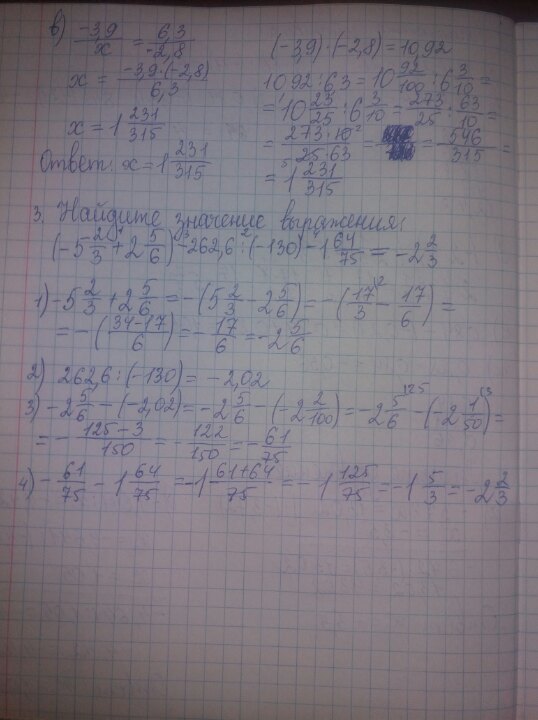 в) -3,9/x = 6,3/-2,8
(-3,9)·(-2,8)=10,92
x = -3,9·(-2,8)/6,3
10,92:6,3=10 92/100 : 6 3/10 =
x = 1 231/315
= 10 23/25 : 6 3/10 = 273/25 : 63/10 =
Ответ: x = 1 231/315
= 273·10²/⁵25·63 = = 546/315 =
= 1 231/315
3. Найдите значение выражения:
(-5 2/3 + 2 5/6) - 262,6 : (-130) - 1 64/75 = -2 2/3
1) -5 2/3 + 2 5/6 = -(5 2/3 - 2 5/6) = -(17/3 - 17/6) =
= -(34-17/6) = -17/6 = -2 5/6
2) 262,6 : (-130) = -2,02
3) -2 5/6 - (-2,02) = -2 5/6 - (-2 2/100) = -2 5/6 - (-2 1/50) =
= -125-3/150 = -122/150 = -61/75
4) -61/75 - 1 64/75 = -1 61+64/75 = -1 125/75 = -1 5/3 = -2 2/3